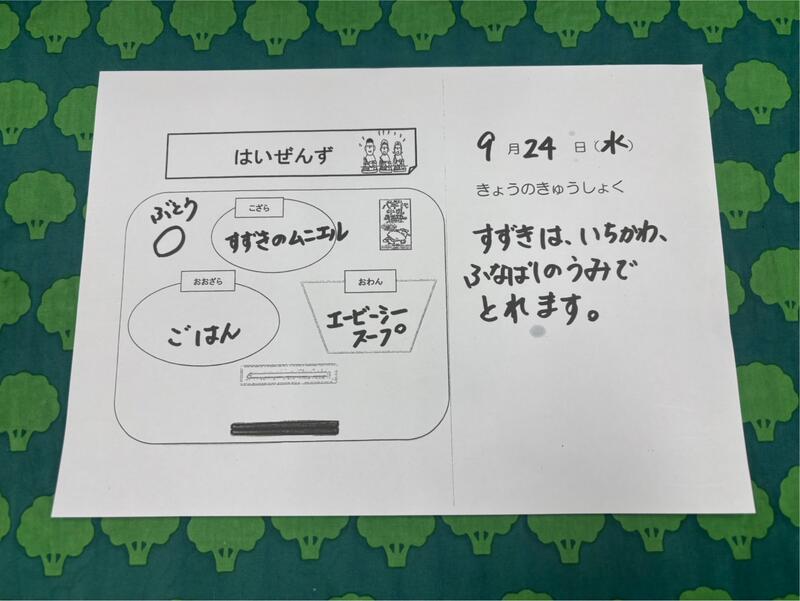 はいぜんず
ぶどう
こざら
すずきのムニエル
おおざら
ごはん
おわん
エービーシー
スープ
9月24日(水)
きょうのきゅうしょく
すずきは、いちかわ、
ふなばしのうみで
とれます。